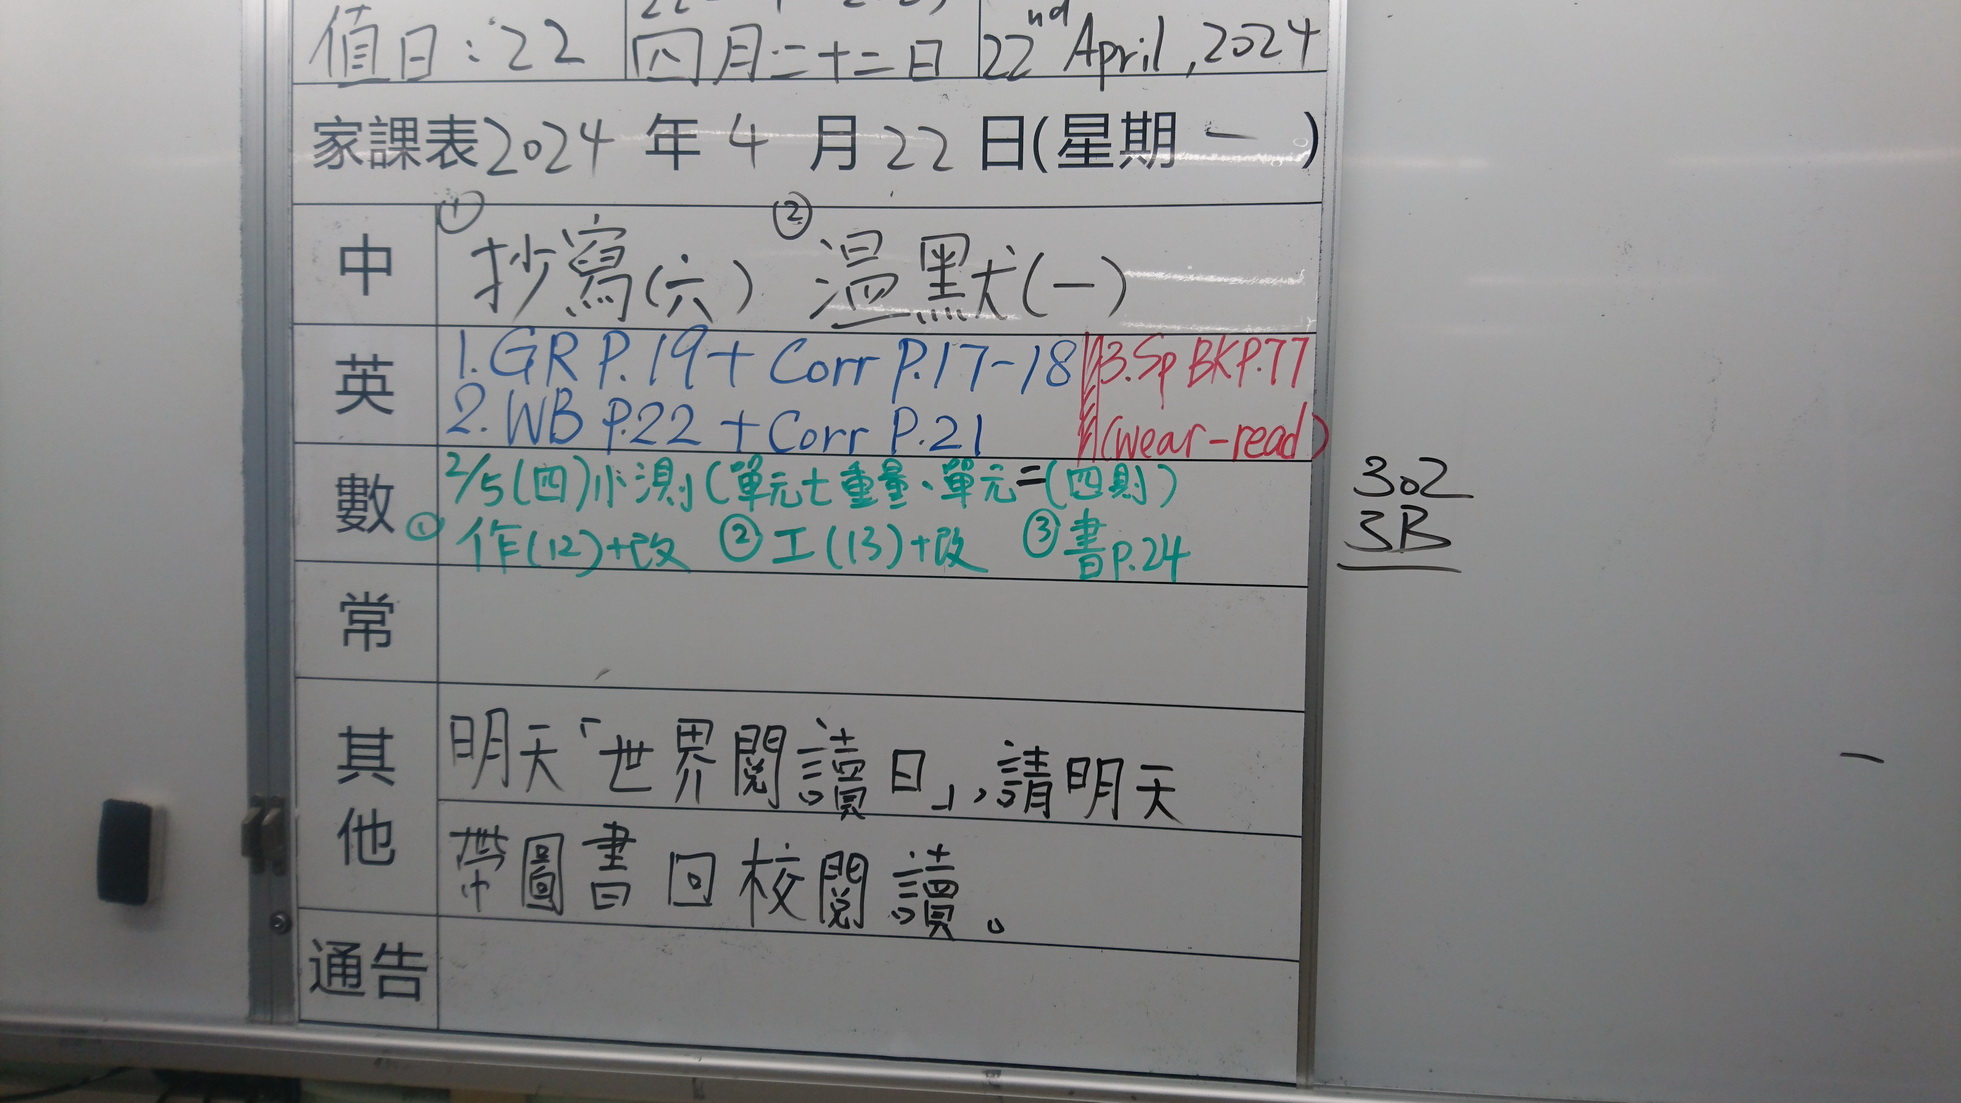 值日：22 四月二十二日 22nd April, 2024
家課表2024年4月22日(星期一)
中 ①抄寫(六) ②溫默(一)
英 1. GR P.19 + Corr P.17-18 3. Sp BK P.77
2. WB P.22 + Corr P.21 (wear-read)
數 2/5(四)小測(單元七重量、單元二(四則)
①作(12)+改 ②工(13)+改 ③書P.24
302
3B
常
其他 明天「世界閱讀日」,請明天
帶圖書回校閱讀。
通告